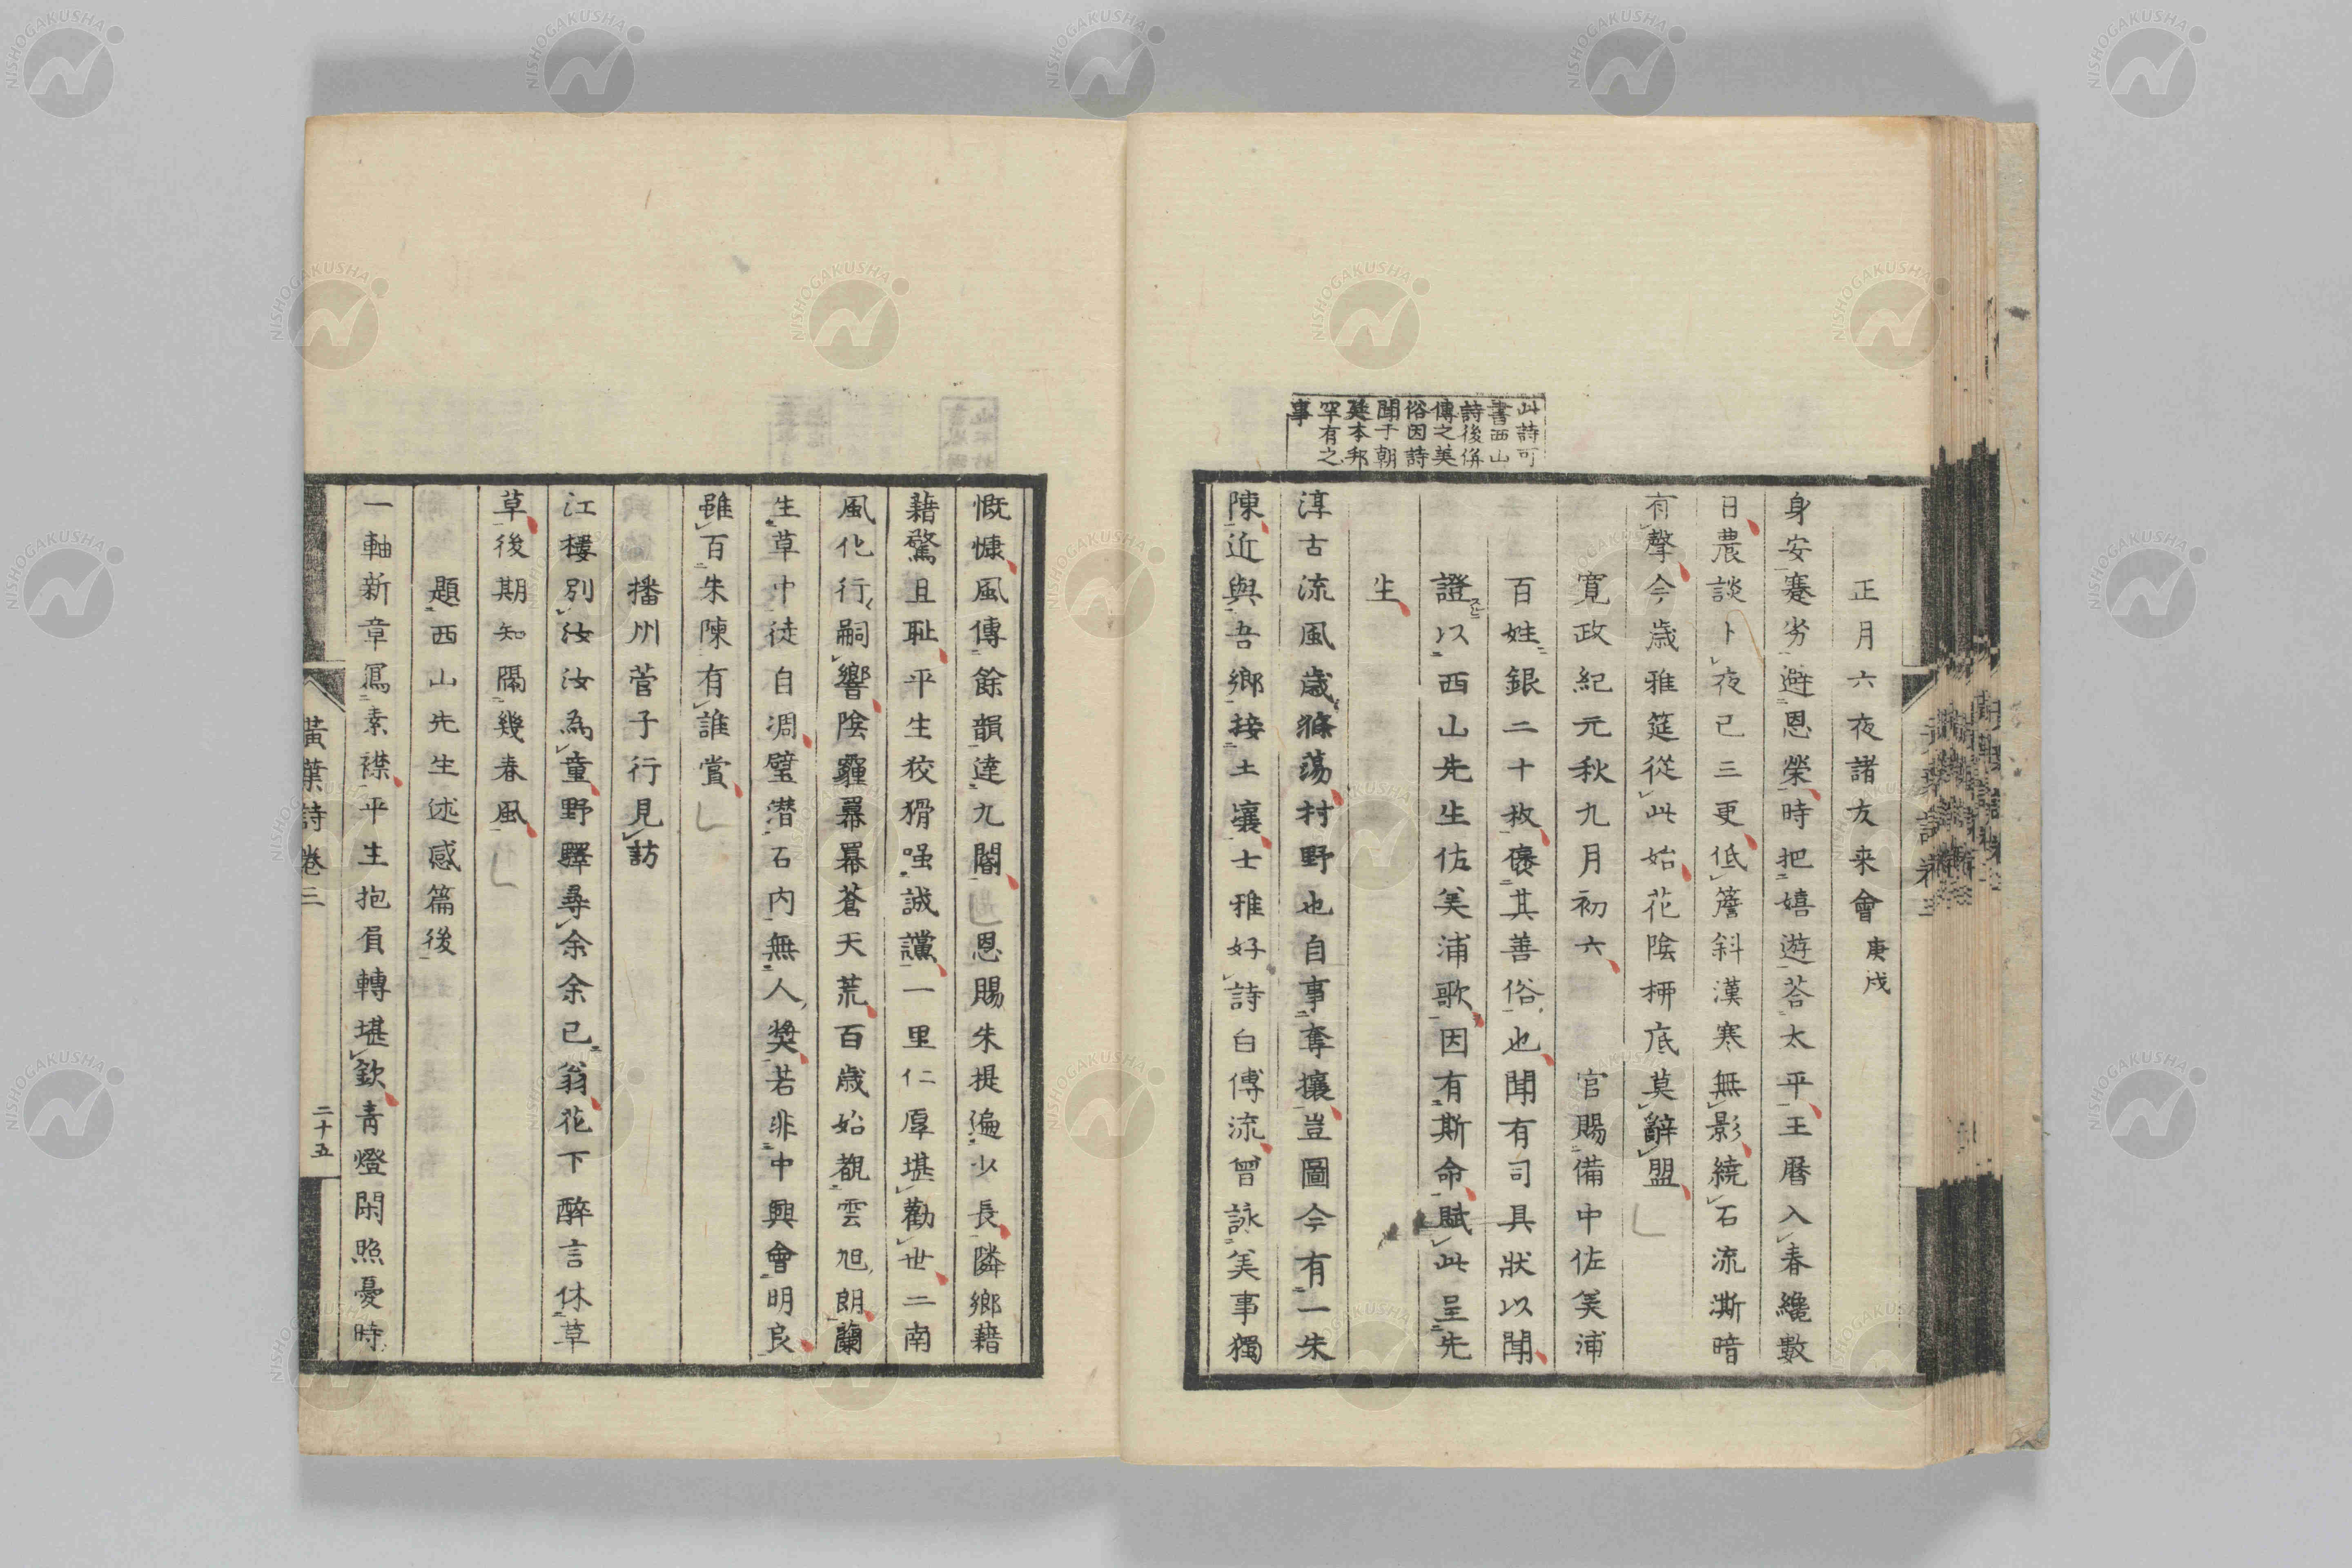 正月六夜諸友来會 庚戌
身安蹇劣避恩榮時把嬉遊荅太平王曆入春纔數
日農談卜夜已三更低簷斜漢寒無影繞石流澌暗
有聲今歳雅筵從此始花陰栁底莫辭盟
寛政紀元秋九月初六 官賜備中佐美浦
百姓銀二十枚襃其善俗也聞有司具狀以聞
證以西山先生佐美浦歌因有斯命賦此呈先
生
此詩可
書西山
詩後併
傳之美
俗因詩
聞于朝
廷本邦
罕有之
事
淳古流風歳滌蕩村野也自事奪攘豈圖今有一朱
陳近與吾鄉接土壤士雅好詩白傅流曾詠美事獨
慨慷風傳餘韻達九閽恩賜朱提遍少長隣鄉藉
藉驚且耻平生狡猾强誠讜一里仁厚堪勸世二南
風化行嗣響陰霾羃羃蒼天荒百歳始覩雲旭朗蘭
生草中徒自凋璧潜石内無人奬若非中興會明良
雖百朱陳有誰賞
播州菅子行見訪
江樓別汝汝為童野驛尋余余已翁花下醉言休草
草後期知隔幾春風
題西山先生述感篇後
一軸新章寫素襟平生抱負轉堪欽青燈閑照憂時
黃葉詩卷三
二十五
NISHOGAKUSHA